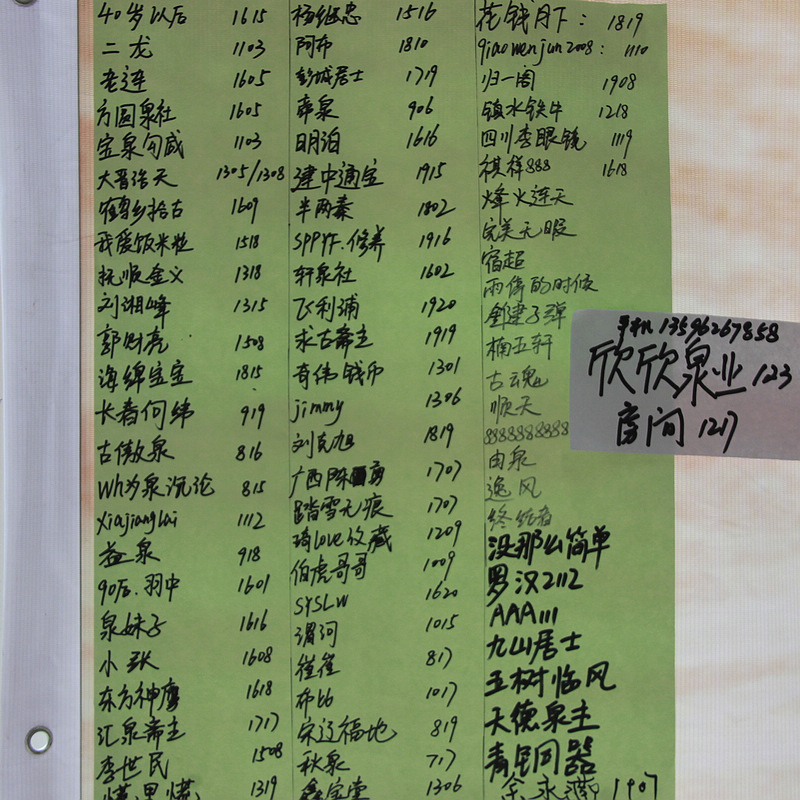 40岁以后 1615
二龙 1103
老连 1605
方圆泉社 1605
宝泉勾咸 1103
大晋浩天 1305/1308
鹤乡拾古 1609
我爱饭米粒 1518
抚顺金义 1318
刘湘峰 1315
郭财亮 1508
海绵宝宝 1815
长春何纬 919
古傲泉 816
Wh为泉沉论 815
Xiajianglai 1112
益泉 918
90后.羽中 1601
泉妹子 1616
小张 1608
东方神鹰 1618
汇泉斋主 1717
李世民 1508
1319
杨继忠 1516
阿布 1810
彭城居士 1719
弄泉 906
明泊 1616
建中通宝 1915
半两素 1802
SPPYF.修养 1916
轩泉社 1602
飞利浦 1920
求古斋主 1919
奇伟钱币 1301
jimmy 1306
刘克旭 1819
广西陈 1707
踏雪无痕 1707
琦love收藏 1209
伯虎哥哥 1009
SYSLW 1620
渭河 1015
崔崔 817
布比 1017
宋辽福地 819
秋泉 717
鑫宝堂 1306
花钱月下： 1819
qiaowenjun2008： 1110
归一阁 1908
镇水铁牛 1218
四川李眼镜 1119
祺祥888 1618
烽火连天
完美无暇
宿超
雨停的时候
刘建子弹
楠五轩
古魂
顺天
8888888888
由泉
逸风
终结者
没那么简单
罗汉2112
AAA111
九山居士
玉树临风
天德泉主
青铜器
余永 1907
手机 13596267858
欣欣泉业 123
房间 1217